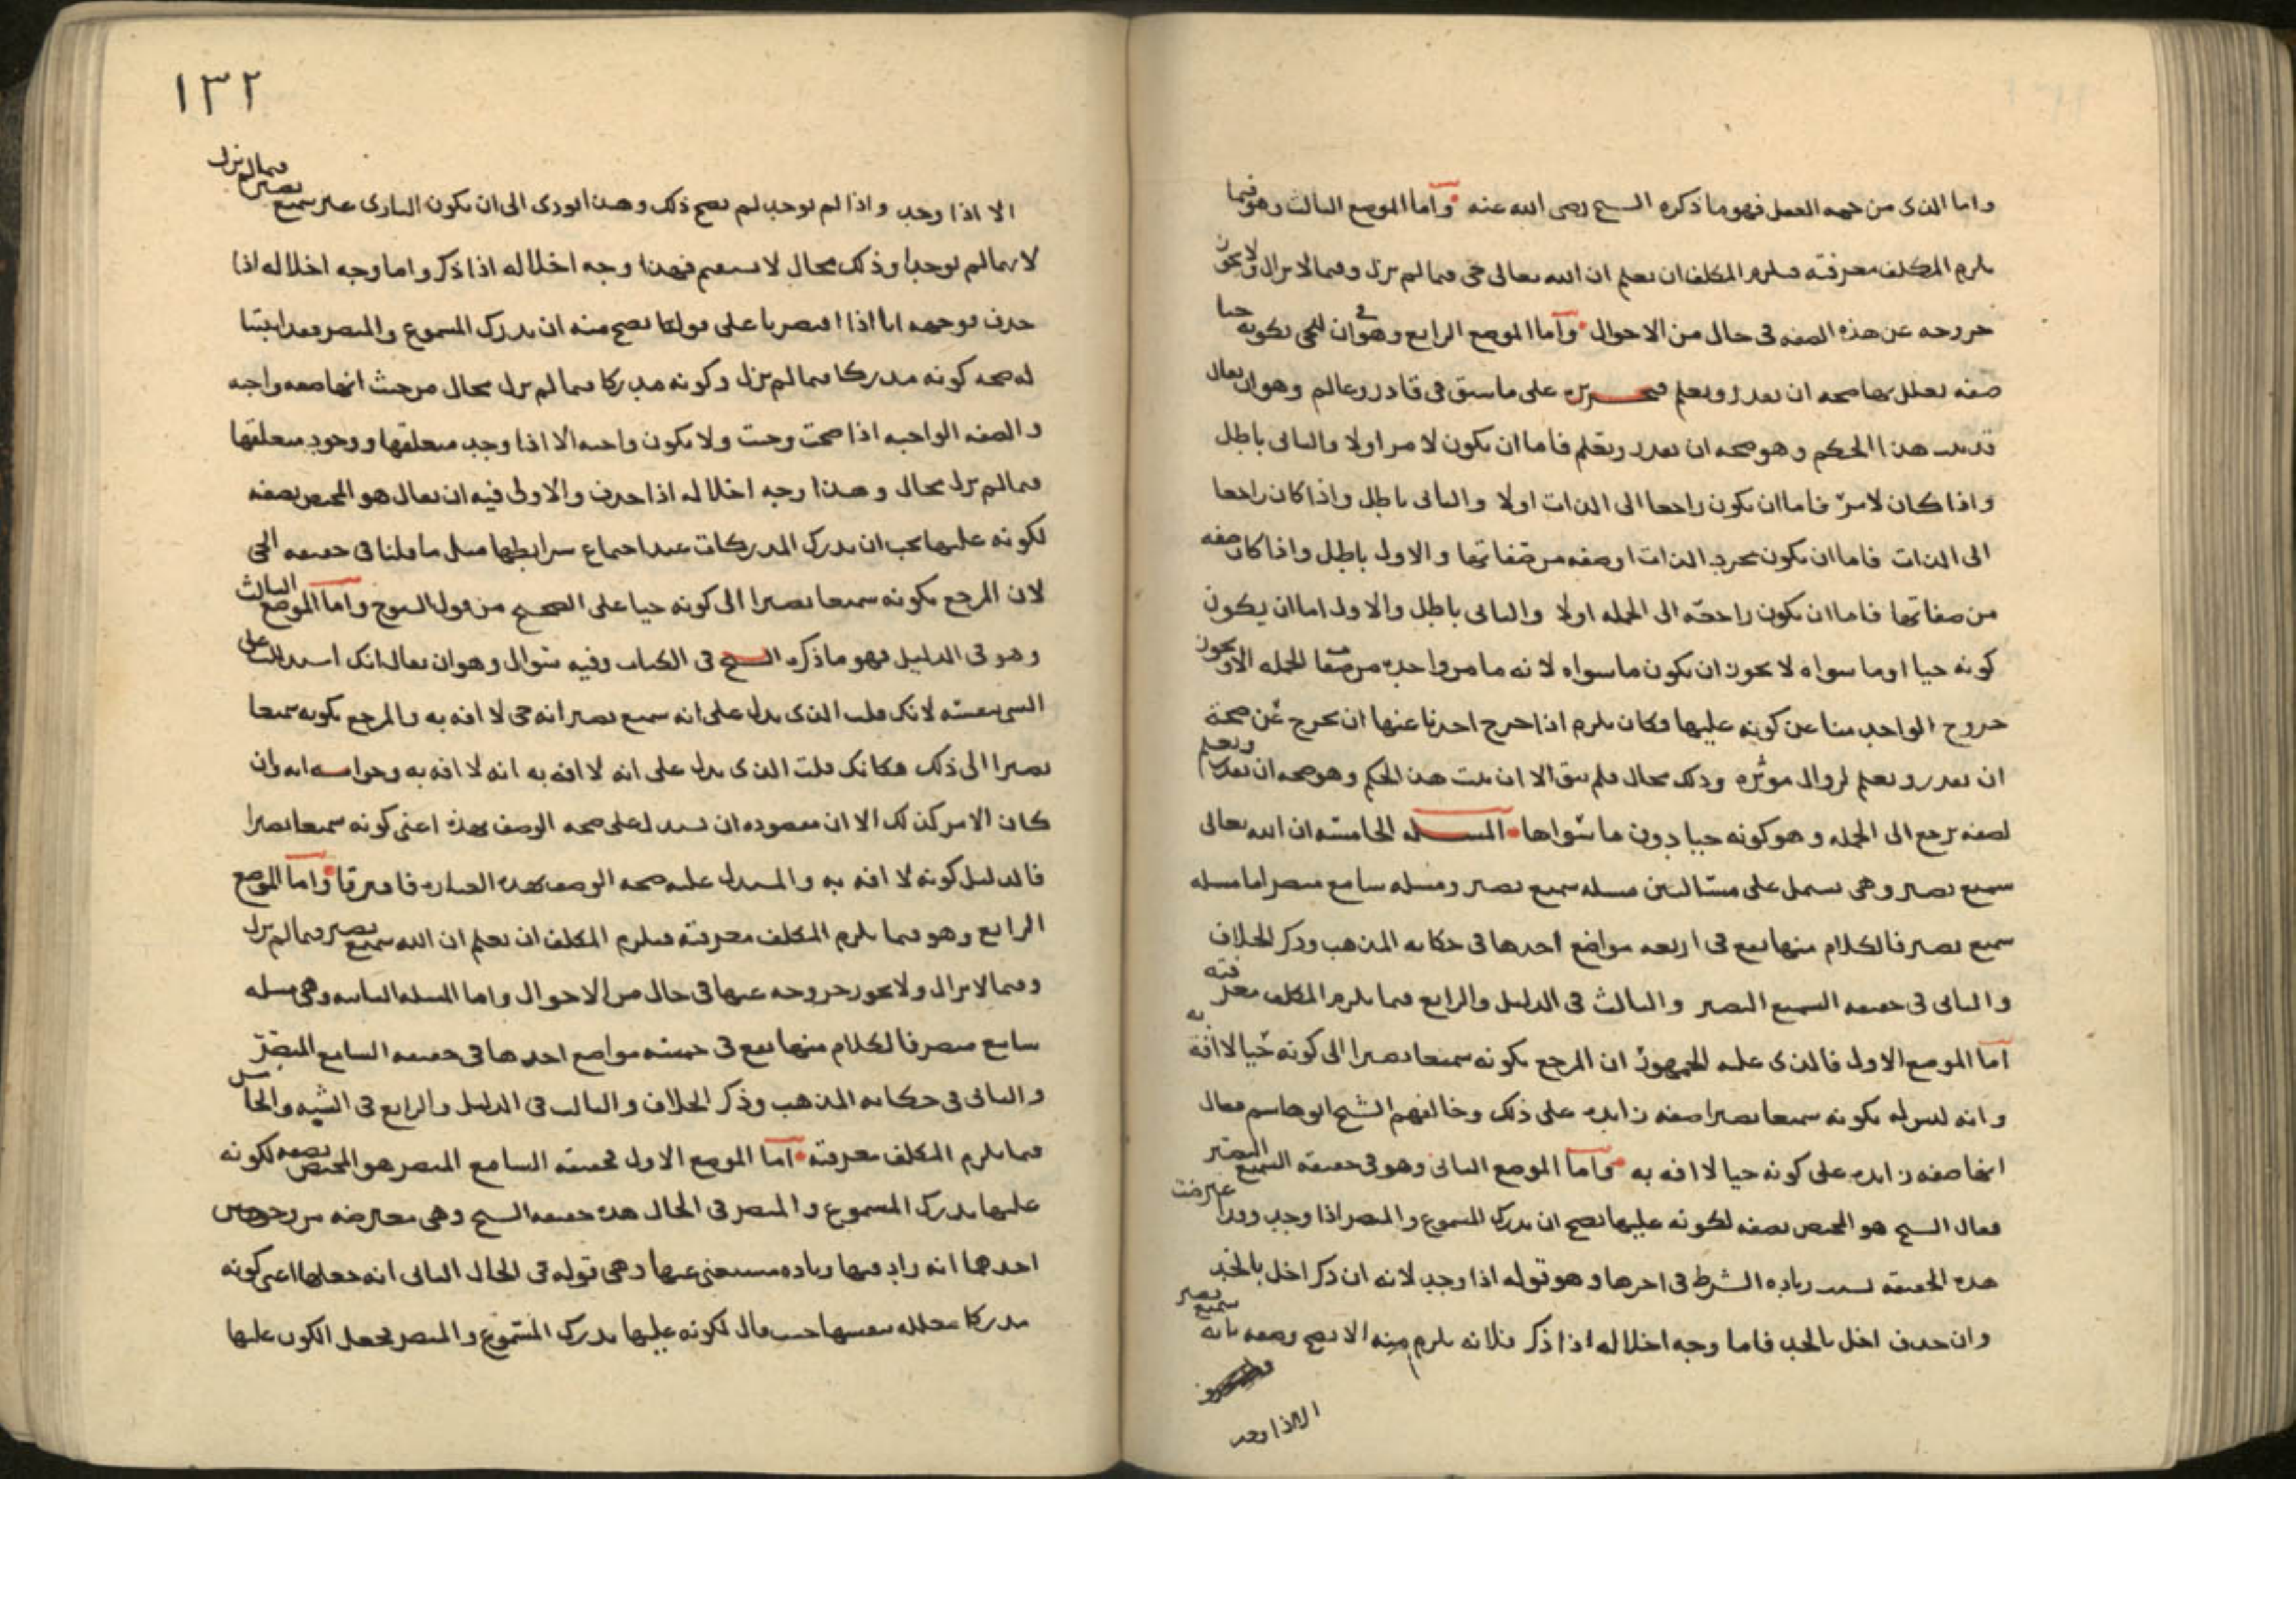 واما الذى من جهه العمل فهو ما ذكره الشيخ رضى الله عنه واما الموضع الثالث وهو فيما
يلزم المكلف معرفته فيلزم المكلف ان يعلم ان الله تعالى حى فيما لم يزل وفيما لا يزال ولا يجوز
خروجه عن هذه الصفه فى حال من الاحوال واما الموضع الرابع وهو فى ان للحى بكونه حيا
صفه يعلل بها صحه ان يقدر ويعلم فتحريره على ما سبق فى قادر وعالم وهو ان يقال
قد ثبت هذا الحكم وهو صحه ان يقدر ويعلم فاما ان يكون لامر اولا والثانى باطل
واذا كان لامر فاما ان يكون راجعا الى الذات اولا والثانى باطل واذا كان راجعا
الى الذات فاما ان يكون بمجرد الذات او صفه من صفاتها والاول باطل واذا كان صفه
من صفاتها فاما ان يكون راجعه الى الجمله اولا والثانى باطل والاول اما ان يكون
كونه حيا او ما سواه لا يجوز ان يكون ما سواه لانه ما من واحده من صفات الجمله الا ويجوز
خروج الواحد منا عن كونه عليها فكان يلزم اذا خرج احدنا عنها ان يخرج عن صحة
ان يقدر ويعلم لزوال مؤثره وذلك محال فلم يبق الا ان يثبت هذا الحكم وهو صحه ان يقدر ويعلم
لصفه ترجع الى الجمله وهو كونه حيا دون ما سواها المسله الخامسه ان الله تعالى
سميع بصير وهى تشمل على مسالتين مسله سميع بصير ومسله سامع مبصر اما مسله
سميع بصير فالكلام منها يقع فى اربعه مواضع احدها فى حكايه المذهب وذكر الخلاف
والثانى فى حقيقه السميع البصير والثالث فى الدليل والرابع فيما يلزم المكلف معرفته
اما الموضع الاول فالذى عليه الجمهور ان المرجع بكونه سميعا بصيرا الى كونه حيا لا افة به
وانه ليس له بكونه سميعا بصيرا صفه زايده على ذلك وخالفهم الشيخ ابو هاشم فقال
انها صفه زايده على كونه حيا لا افه به واما الموضع الثانى وهو فى حقيقه السميع البصير
فقال الشيخ هو المختص بصفه لكونه عليها يصح ان يدرك المسموع والمبصر اذا وجد وقد اعترضت
هذه الحقيقه بسبب زياده الشرط فى اخرها وهو قوله اذا وجد لانه ان ذكر اخل بالحد
وان حذف اخل بالحد فاما وجه اخلاله اذا ذكر فلانه يلزم منه الا يصح وصفه بانه سميع بصير
الا اذا وجد
١٣٢
الا اذا وجد واذا لم يوجد لم يصح ذلك وهذا يودى الى ان يكون البارى غير سميع بصير فيما لم يزل
لانها لم يوجدا وذلك محال لا يستقيم فهذا وجه اخلاله اذا ذكر واما وجه اخلاله اذا
حذف فوجهه انا اذا اقتصرنا على قولنا يصح منه ان يدرك المسموع والمبصر فقد اثبتنا
له صحه كونه مدركا فيما لم يزل وكونه مدركا فيما لم يزل محال من حيث انها صفه واجبه
والصفه الواجبه اذا صحت وجبت ولا يكون واجبه الا اذا وجد متعلقها ووجود متعلقها
فيما لم يزل محال وهذا وجه اخلاله اذا حذف والاولى فيه ان يقال هو المختص بصفه
لكونه عليها يجب ان يدرك المدركات عند اجتماع شرايطها مثل ما قلنا فى حقيقه الحى
لان المرجع بكونه سميعا بصيرا الى كونه حيا على الصحيح من قول الشيوخ واما الموضع الثالث
وهو فى الدليل فهو ما ذكره الشيخ فى الكتاب وفيه سوال وهو ان يقال انك استدللت على
الشى بنفسه لانك قلت الذى يدل على انه سميع بصير انه حى لا افه به والمرجع بكونه سميعا
بصيرا الى ذلك فكانك قلت الذى يدل على انه لا افه به انه لا افه به وجوابه انه وان
كان الامر كذلك الا ان مقصوده ان يستدل على صحه الوصف بهذه اعنى كونه سميعا بصيرا
فالدليل كونه لا افه به والمستدل عليه صحه الوصف بهذه العباره فافترقا واما الموضع
الرابع وهو فيما يلزم المكلف معرفته فيلزم المكلف ان يعلم ان الله سميع بصير فيما لم يزل
وفيما لا يزال ولا يجوز خروجه عنها فى حال من الاحوال واما المسله الثانيه وهى مسله
سامع مبصر فالكلام منها يقع فى خمسه مواضع احدها فى حقيقه السامع المبصر
والثانى فى حكايه المذهب وذكر الخلاف والثالث فى الدليل والرابع فى الشبه والخامس
فيما يلزم المكلف معرفته اما الموضع الاول فحقيقه السامع المبصر هو المختص بصفه لكونه
عليها يدرك المسموع والمبصر فى الحال هذه حقيقه الشيخ وهى معترضه من وجهين
احدهما انه زاد فيها زياده مستغنى عنها وهى قوله فى الحال الثانى انه جعلها اعنى كونه
مدركا معلله بنفسها حيث قال لكونه عليها يدرك المسموع والمبصر فجعل الكون عليها